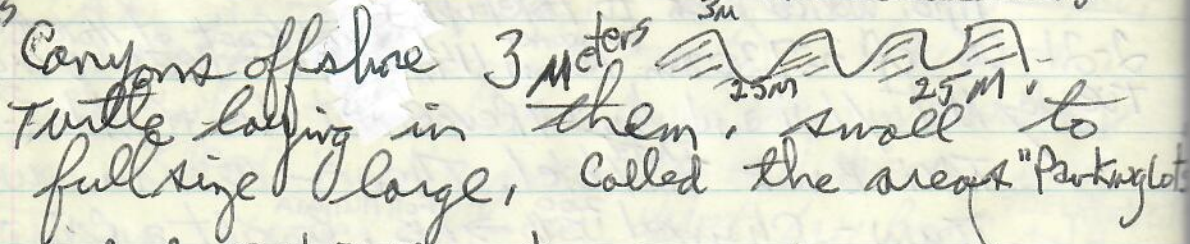 3M
Canyons offshore 3 Meters
25M 25M.
Turtle laying in them. small to
full size large, called the areas "Parkinglot